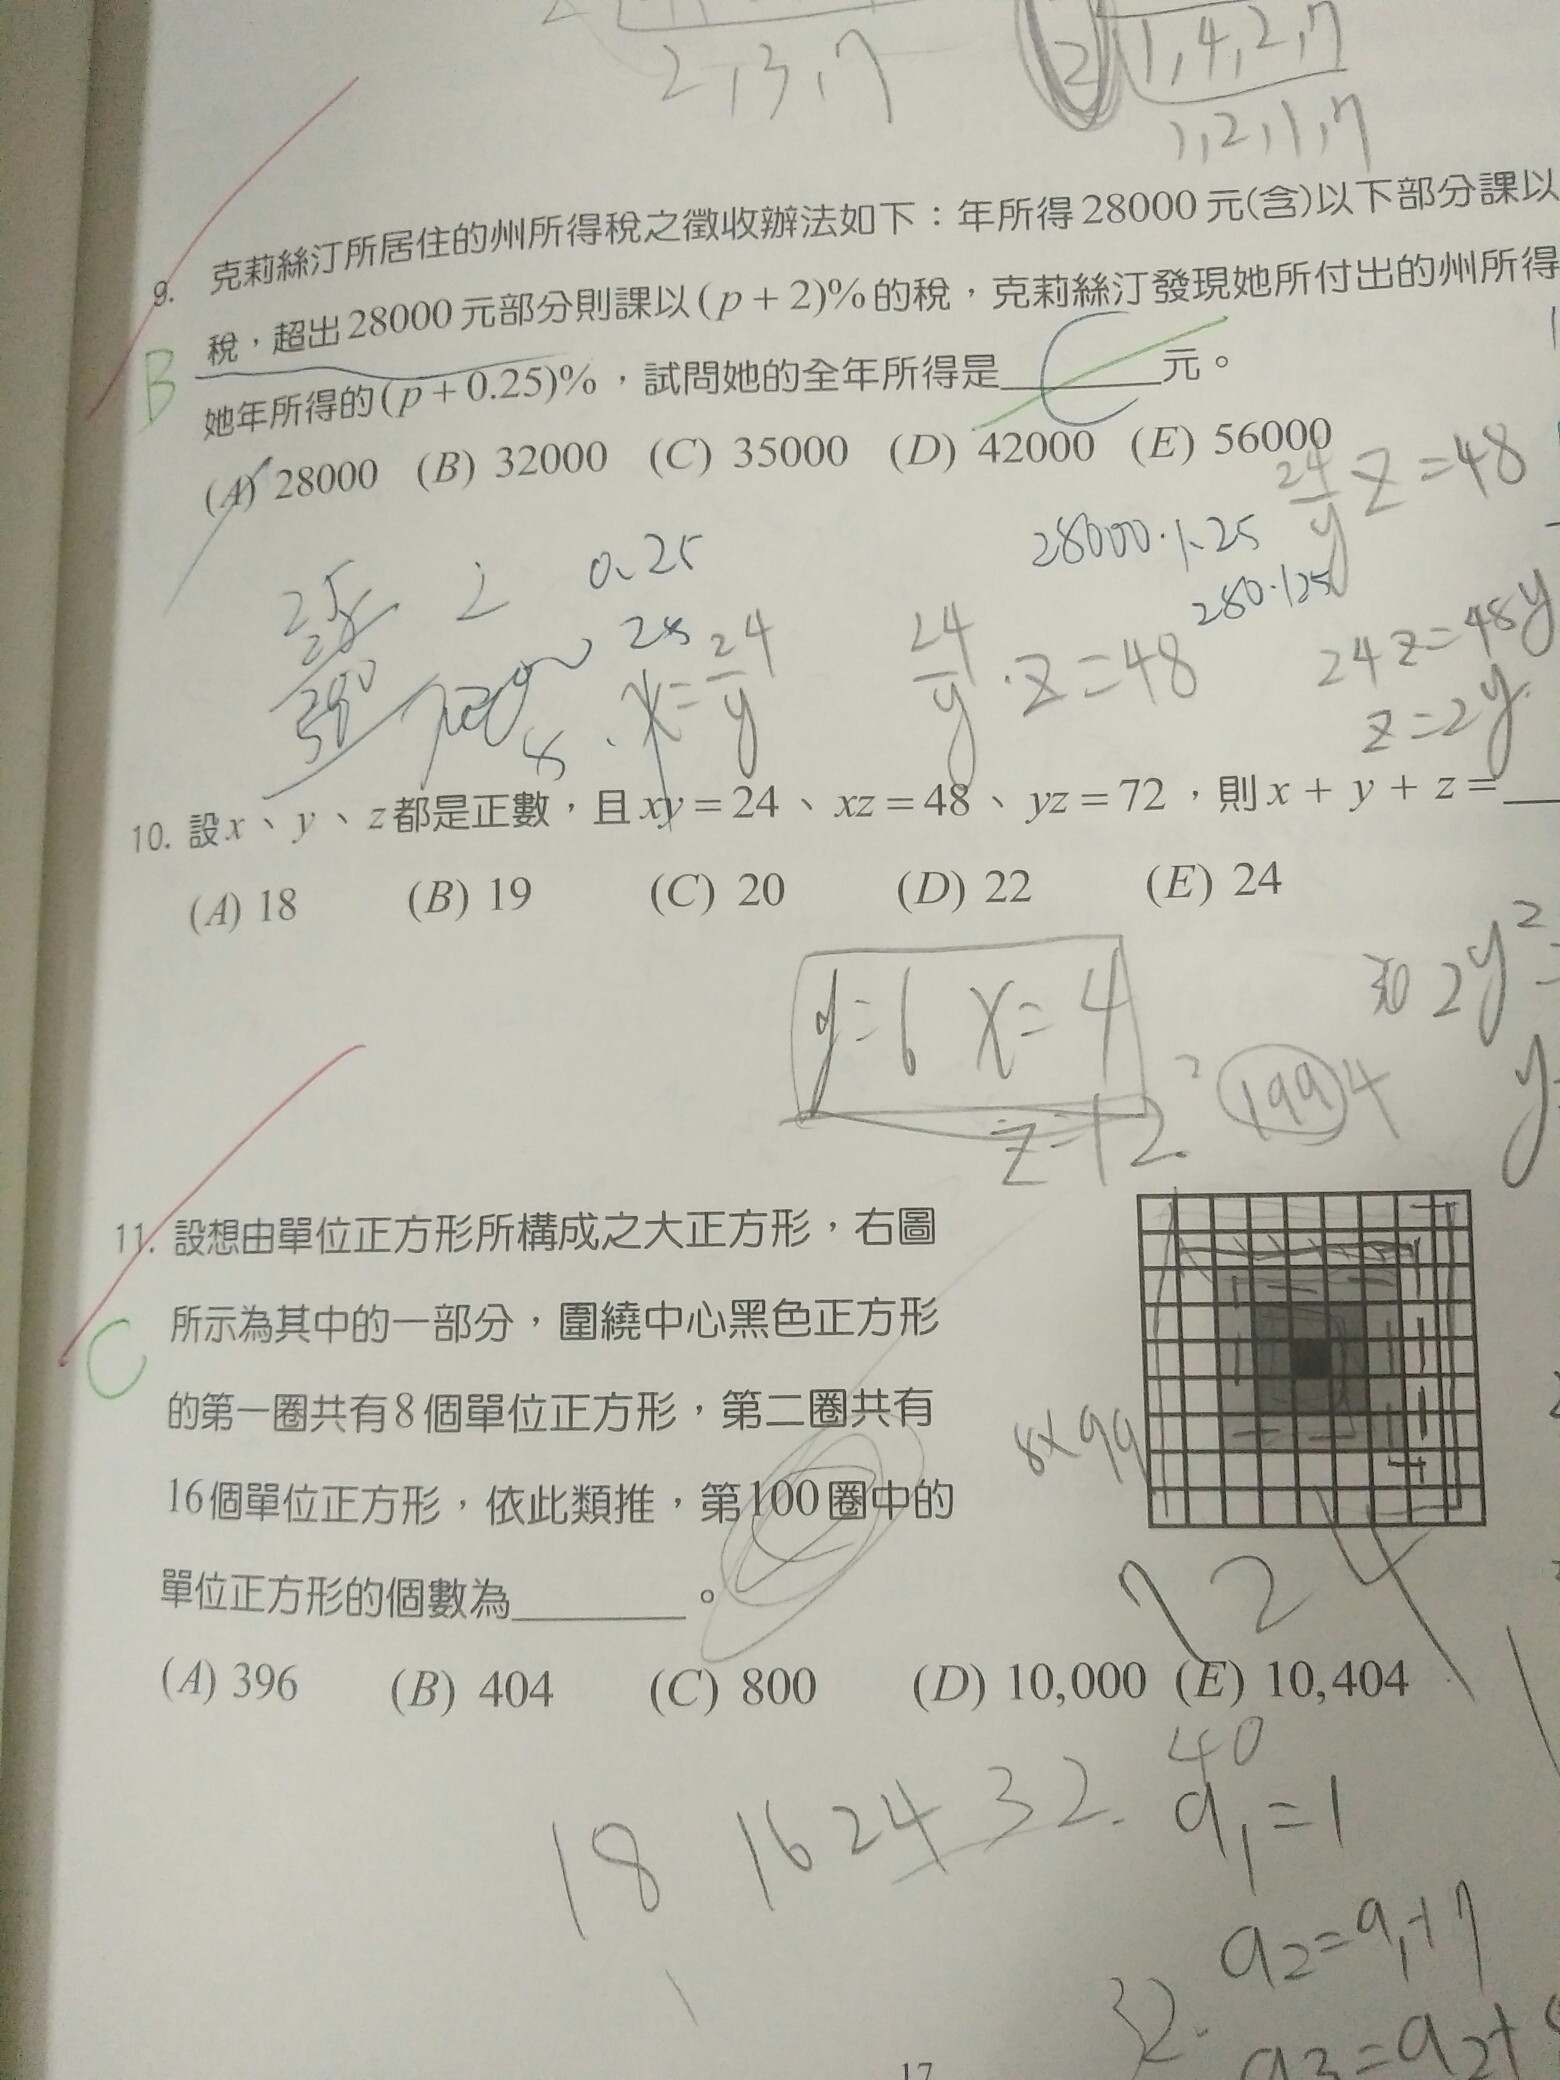 2,3,7
2 1,4,2,7
1,2,1,7
9. 克莉絲汀所居住的州所得稅之徵收辦法如下：年所得28000元(含)以下部分課以
稅，超出28000元部分則課以(p+2)%的稅，克莉絲汀發現她所付出的州所得
B
她年所得的(p+0.25)%，試問她的全年所得是________元。
C
(A) 28000 (B) 32000 (C) 35000 (D) 42000 (E) 56000
24/y z=48
0.25
28000·1.25
280·125
2
28
x=24/y
24/y ·z=48
24z=48y
z=2y
8
10. 設x、y、z都是正數，且xy=24、xz=48、yz=72，則x+y+z=
(A) 18 (B) 19 (C) 20 (D) 22 (E) 24
2y²=
y=6 x=4
z=12
1994
11. 設想由單位正方形所構成之大正方形，右圖
所示為其中的一部分，圍繞中心黑色正方形
C
的第一圈共有8個單位正方形，第二圈共有
8×99
16個單位正方形，依此類推，第100圈中的
單位正方形的個數為________。
724
(A) 396 (B) 404 (C) 800 (D) 10,000 (E) 10,404
40
18 16 24 32
a₁=1
a₂=a₁+7
32
a₃=a₂+8
17